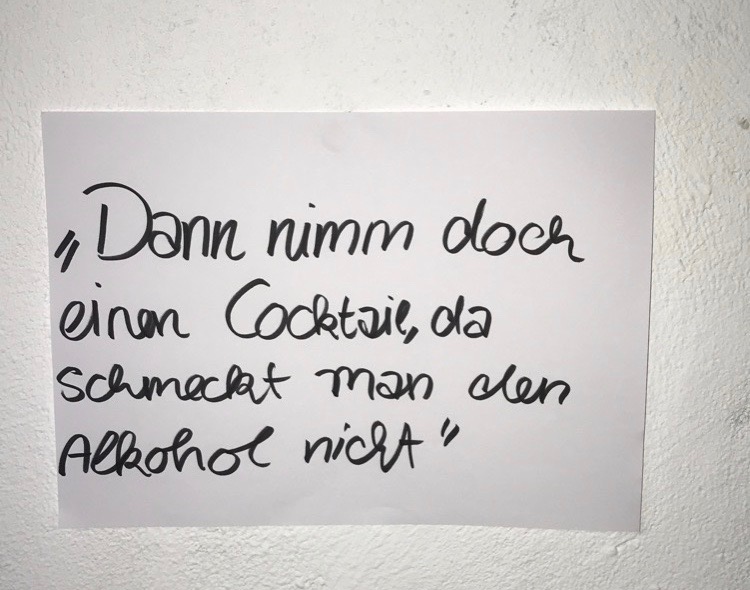 „Dann nimm doch
einen Cocktail, da
schmeckt man den
Alkohol nicht"